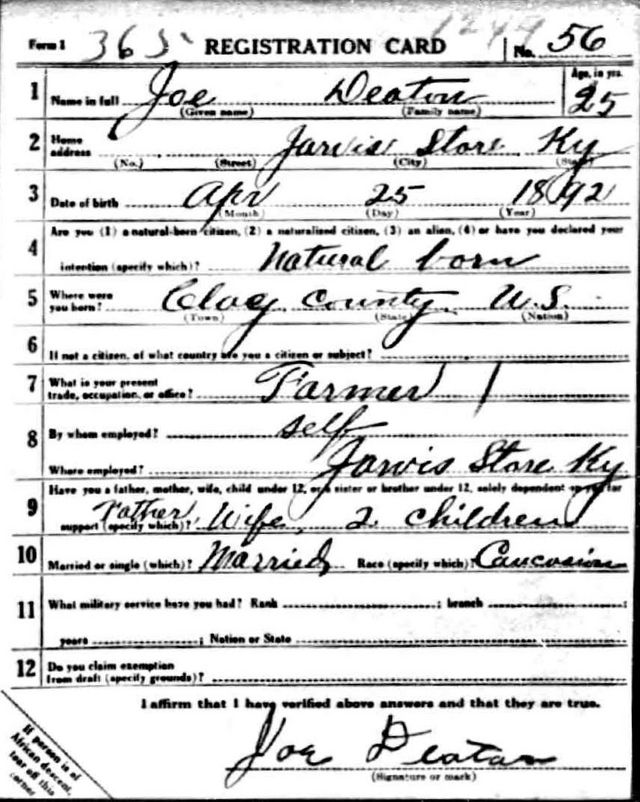 Form 1 365 REGISTRATION CARD No. 56
1 Name in full Joe Deaton Age, in yrs. 25
(Given name) (Family name)
2 Home address Jarvis Store Ky
(No.) (Street) (City) (State)
3 Date of birth Apr 25 1892
(Month) (Day) (Year)
4 Are you (1) a natural-born citizen, (2) a naturalized citizen, (3) an alien, (4) or have you declared your
intention (specify which)? Natural born
5 Where were you born? Clay County U.S.
(Town) (State) (Nation)
6 If not a citizen, of what country are you a citizen or subject?
7 What is your present trade, occupation, or office? Farmer
8 By whom employed? self
Where employed? Jarvis Store Ky
9 Have you a father, mother, wife, child under 12, or a sister or brother under 12, solely dependent on you for
support (specify which)? Father Wife, 2 children
10 Married or single (which)? Married Race (specify which)? Caucasian
11 What military service have you had? Rank ; branch ;
years ; Nation or State
12 Do you claim exemption from draft (specify grounds)?
I affirm that I have verified above answers and that they are true.
Joe Deaton
(Signature or mark)
If person is of
African descent,
tear off this
corner